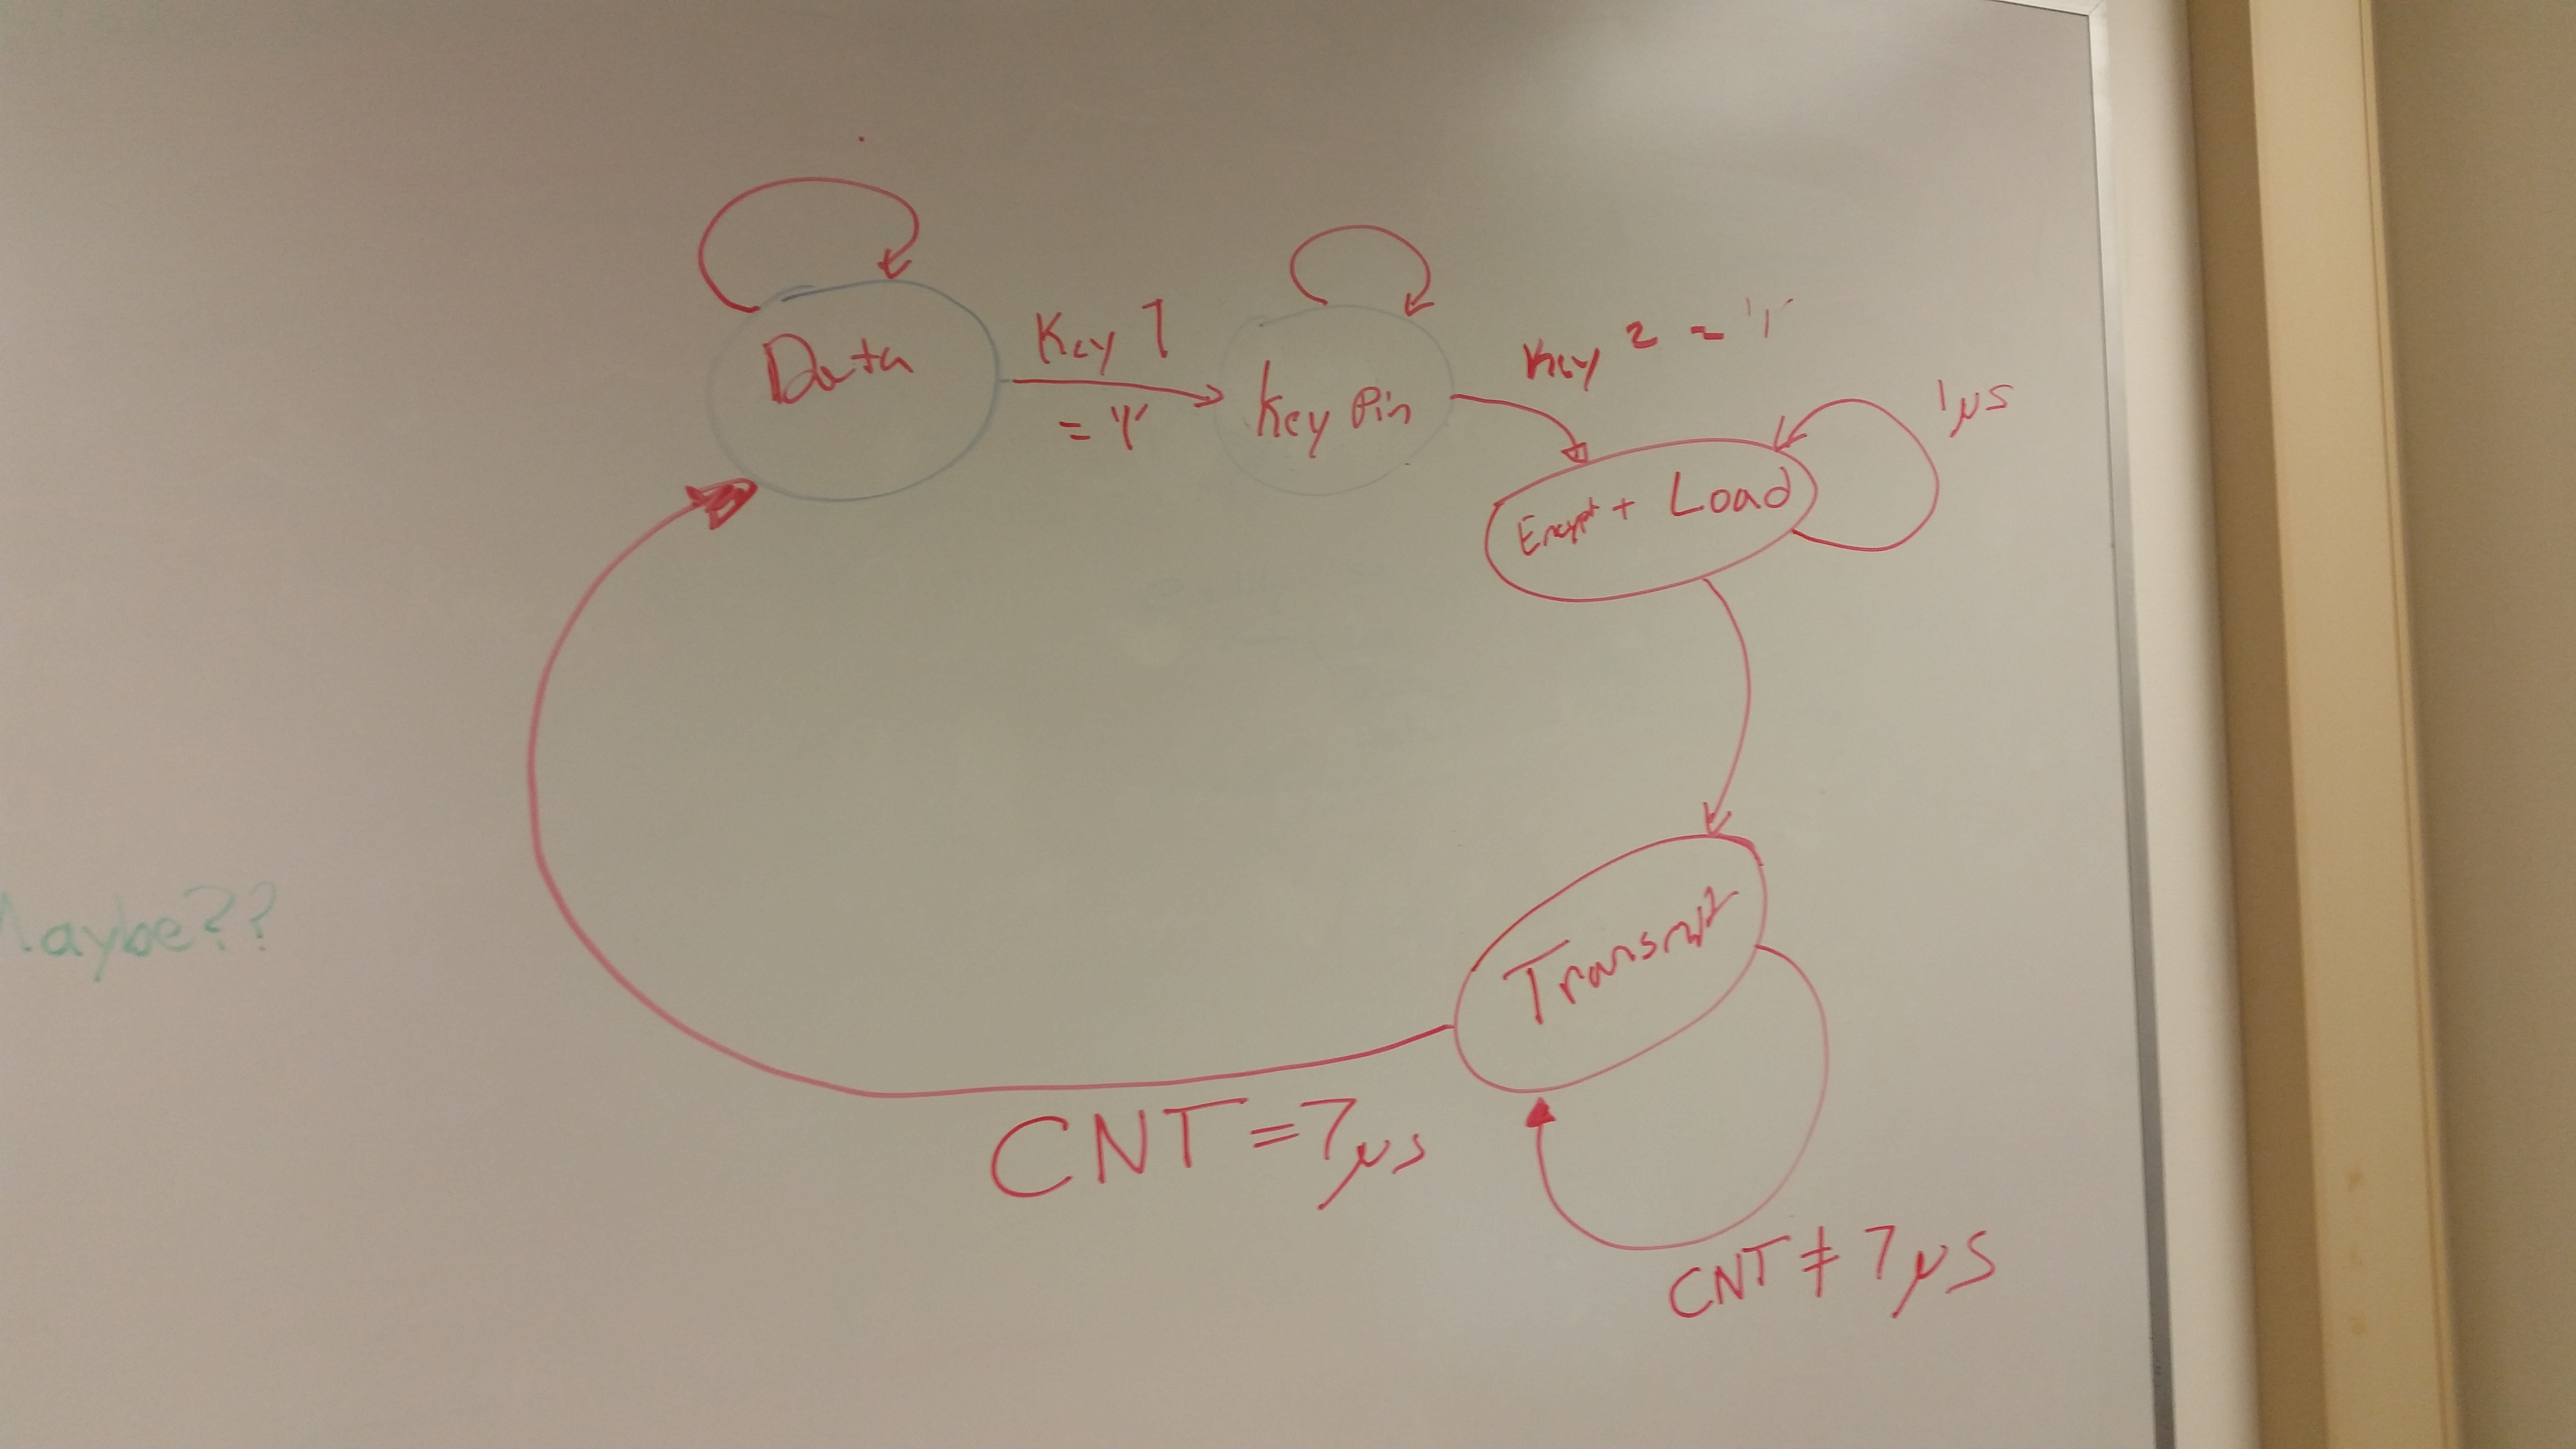 Data
Key 1
= '1'
Key Pin
Key 2 = '1'
1µs
Encypt + Load
Transmit
CNT = 7µs
CNT ≠ 7µs
Maybe??